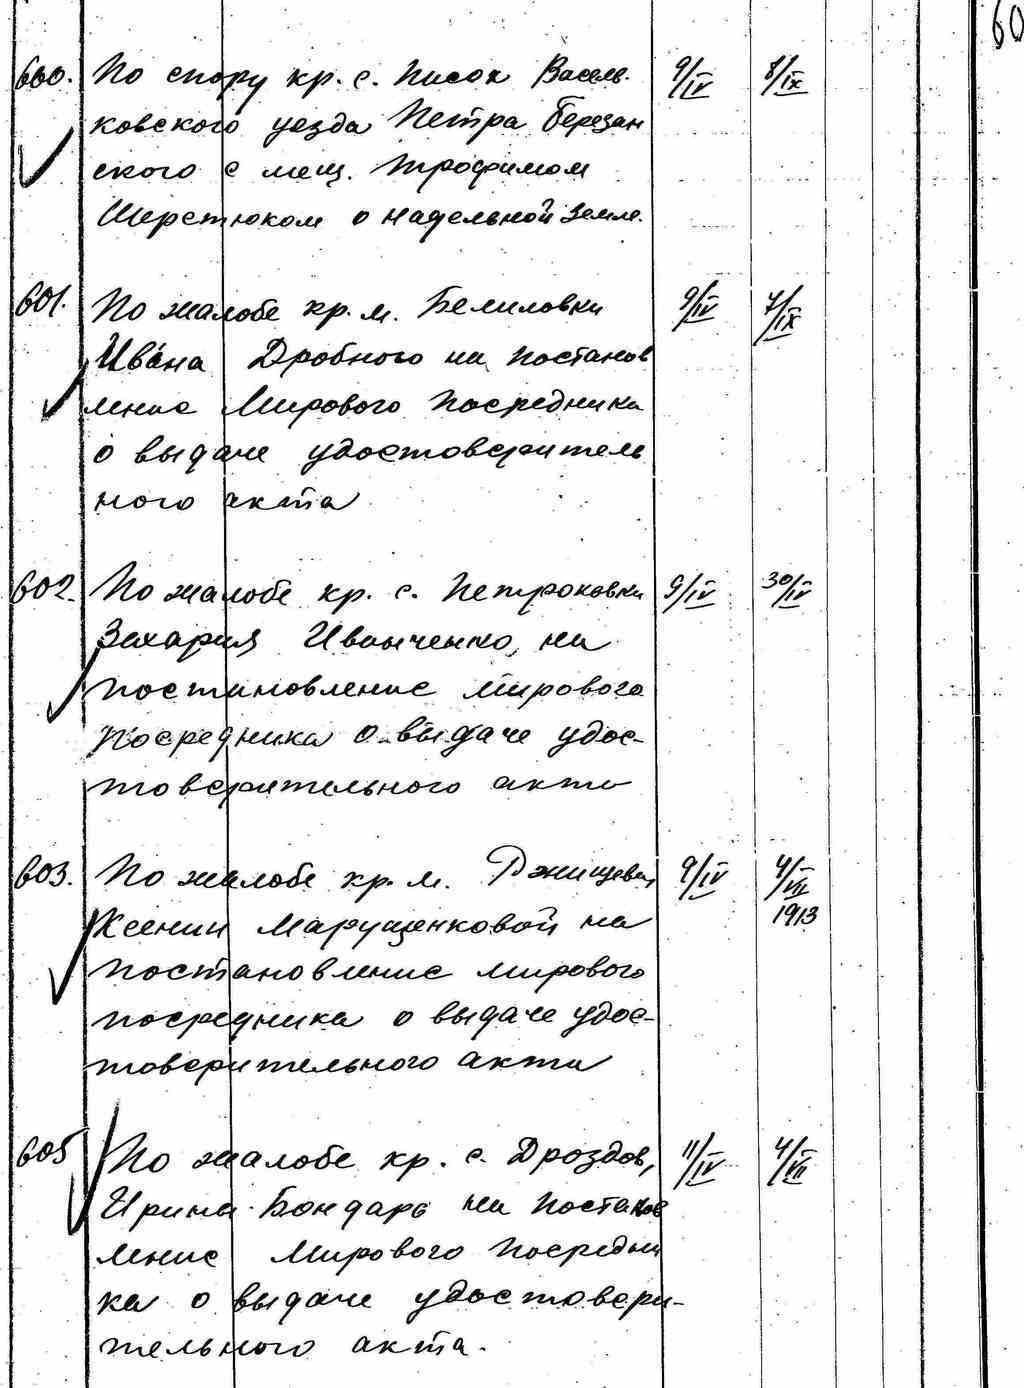 60
600. По спору кр. с. Писок Василь- 9/IV 8/IX
ковского уезда Петра Березан
ского с мещ. Трофимом
Шерстюком о надельной земле.
601. По жалобе кр. м. Белиловки 9/IV 7/IX
Ивана Дробного на постанов
ление Мирового Посредника
о выдаче удостоверитель
ного акта
602. По жалобе кр. с. 9/IV 30/IV
Захария Иванченко, на
постановление мирового
посредника о выдаче удос-
товерительного акта
603. По жалобе кр. м. Ржищева, 9/IV 4/VII
1913
Ксении Марущенковой на
постановление мирового
посредника о выдаче удос-
товерительного акта
605 По жалобе кр. с. Дроздов, 11/IV 4/VII
Ирина Бондарь на постанов
ление Мирового Посредни
ка о выдаче удостовери-
тельного акта.